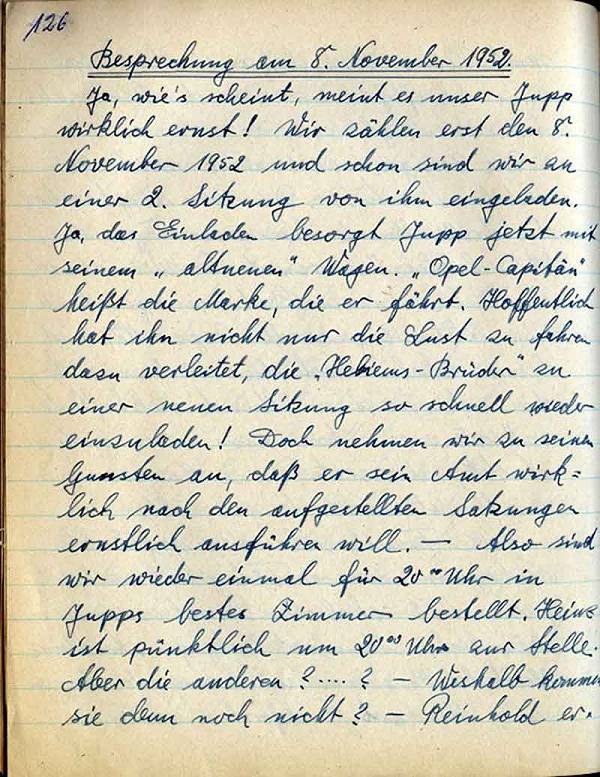 126
Besprechung am 8. November 1952.
Ja, wie's scheint, meint es unser Jupp
wirklich ernst! Wir zählen erst den 8.
November 1952 und schon sind wir an
einer 2. Sitzung von ihm eingeladen.
Ja, das Einladen besorgt Jupp jetzt mit
seinem „altneuen" Wagen. „Opel-Capitän"
heißt die Marke, die er fährt. Hoffentlich
hat ihn nicht nur die Lust zu fahren
dazu verleitet, die „-Brüder" zu
einer neuen Sitzung so schnell wieder
einzuladen! Doch nehmen wir zu seinen
Gunsten an, daß er sein Amt wirk=
lich nach den aufgestellten Satzungen
ernstlich ausführen will. — Also sind
wir wieder einmal für 20⁰⁰ Uhr in
Jupps bestes Zimmer bestellt. Heinz
ist pünktlich um 20⁰⁰ Uhr zur Stelle.
Aber die anderen ?....? — Weshalb kommen
sie denn noch nicht? — Reinhold er-